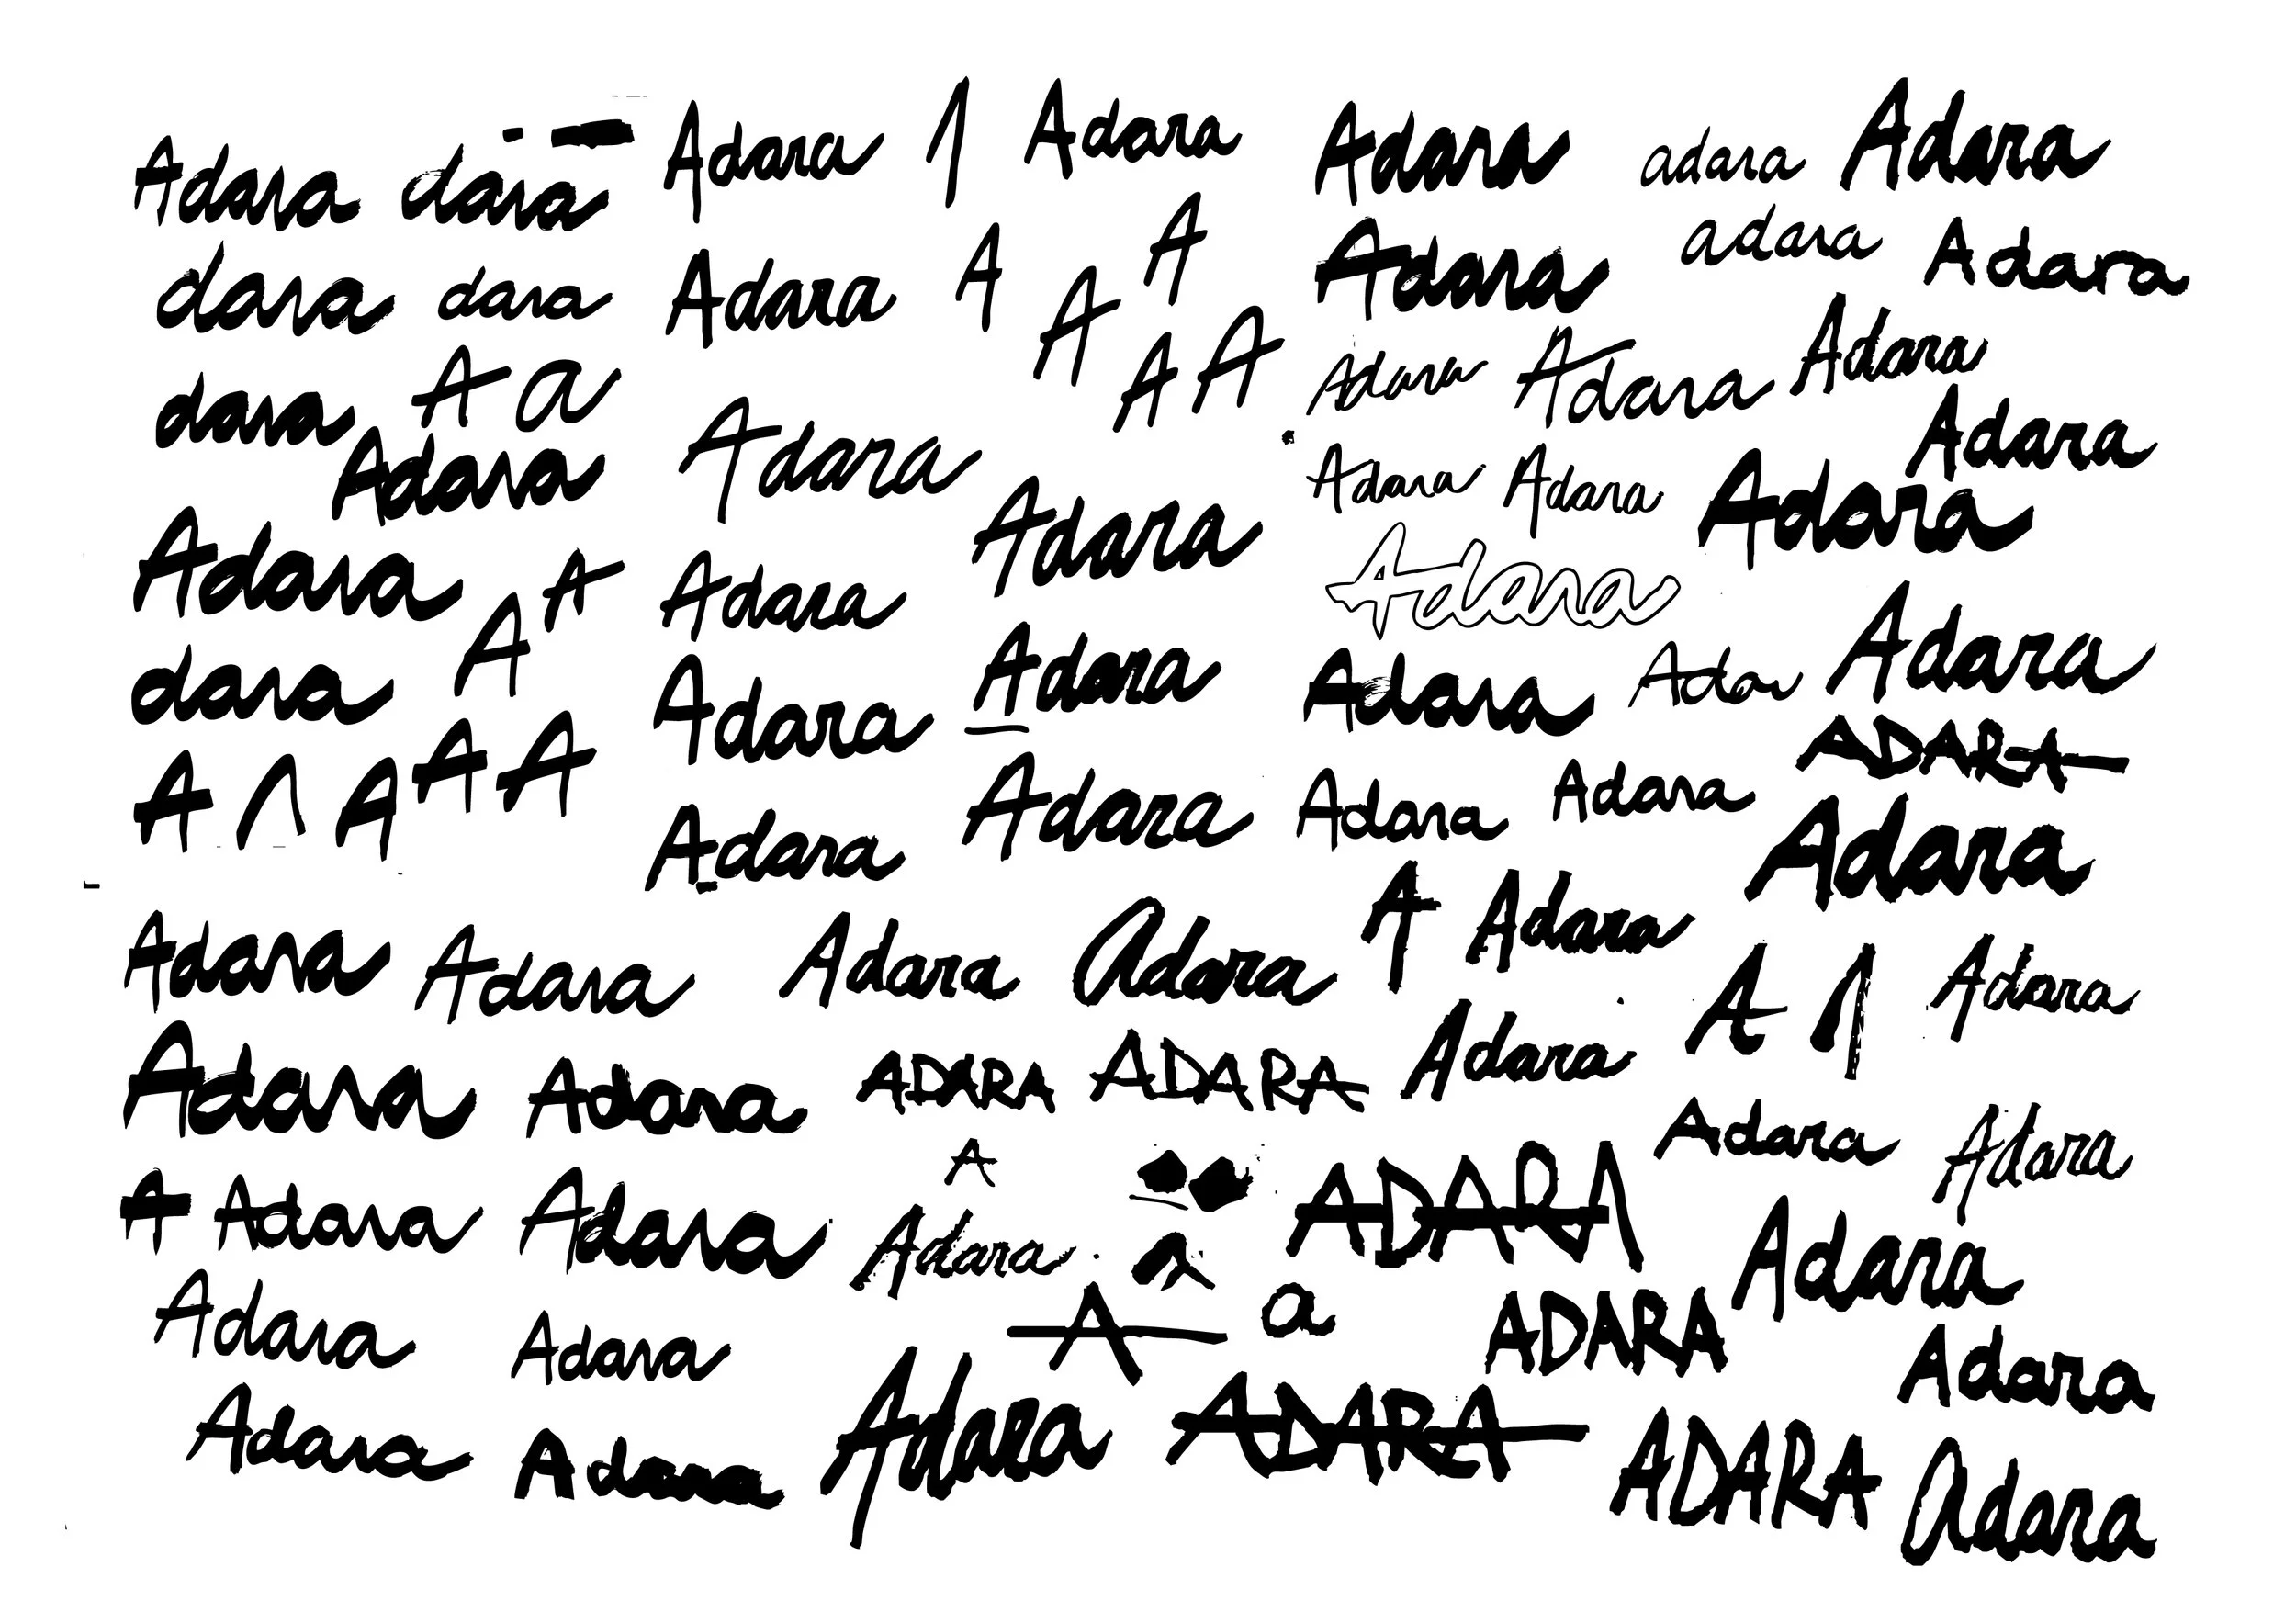 Adara dara Adara Adara Adara adara Adara
dara dara Adara A A A Adara adara Adara
dara A a Adara A A Adara Adara Adara
Adara Adara Adara Adara Adara Adara
Adara A Adara Adara Adara
dara A Adara Adara Adara Ada Adara
A A A A Adara Adara Adara Adara ADARA
Adara Adara
Adara Adara Adara Adara A Adara A Adara
Adara Adara ADARA ADARA Adara Adara Adara
A Adara Adara A Adara ADARA Adara
Adara Adara A a ADARA Adara
Adara Adara Adara ADARA ADARA Adara